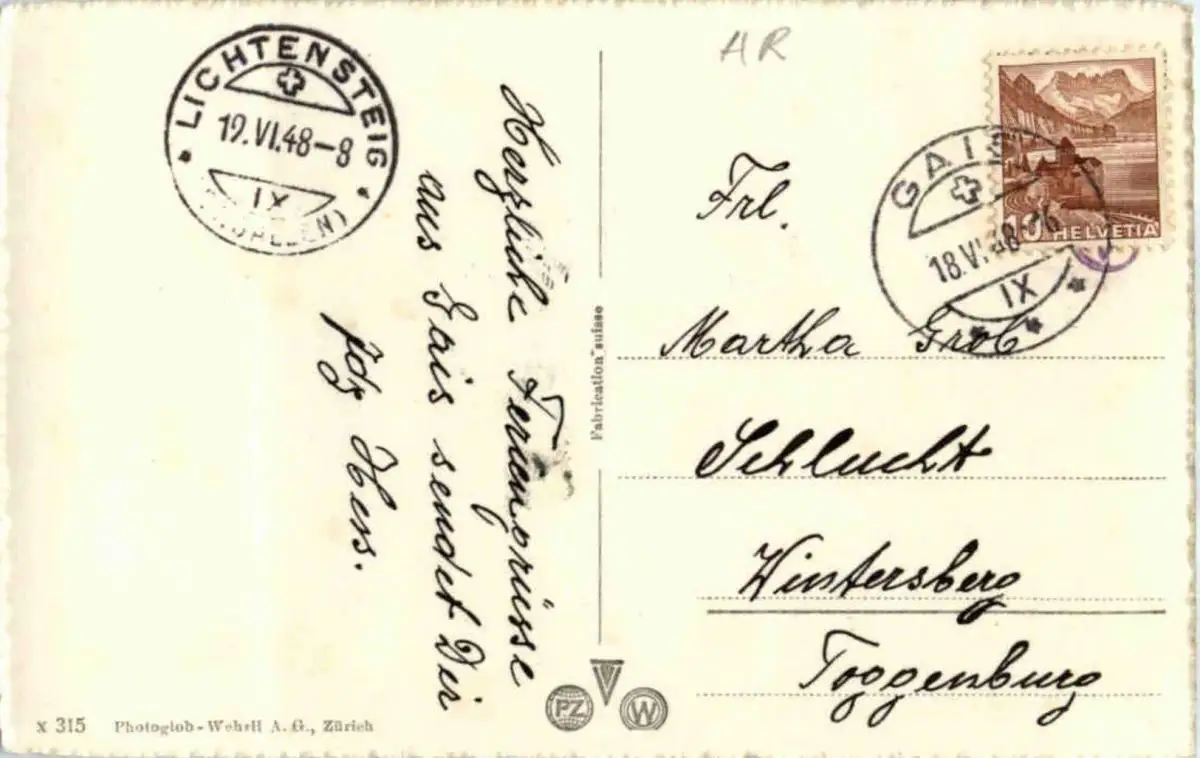 AR
LICHTENSTEIG
19.VI.48-8
IX
(ST.GALLEN)
Herzliche Feriengrüsse
aus Gais sendet Dir
Hess.
Fabrication suisse
GAIS
18.VI.48-16
IX
10 HELVETIA
Frl.
Martha Grob
Schlucht
Wintersberg
Toggenburg
PZ
W
X 315 Photoglob-Wehrli A.G., Zürich